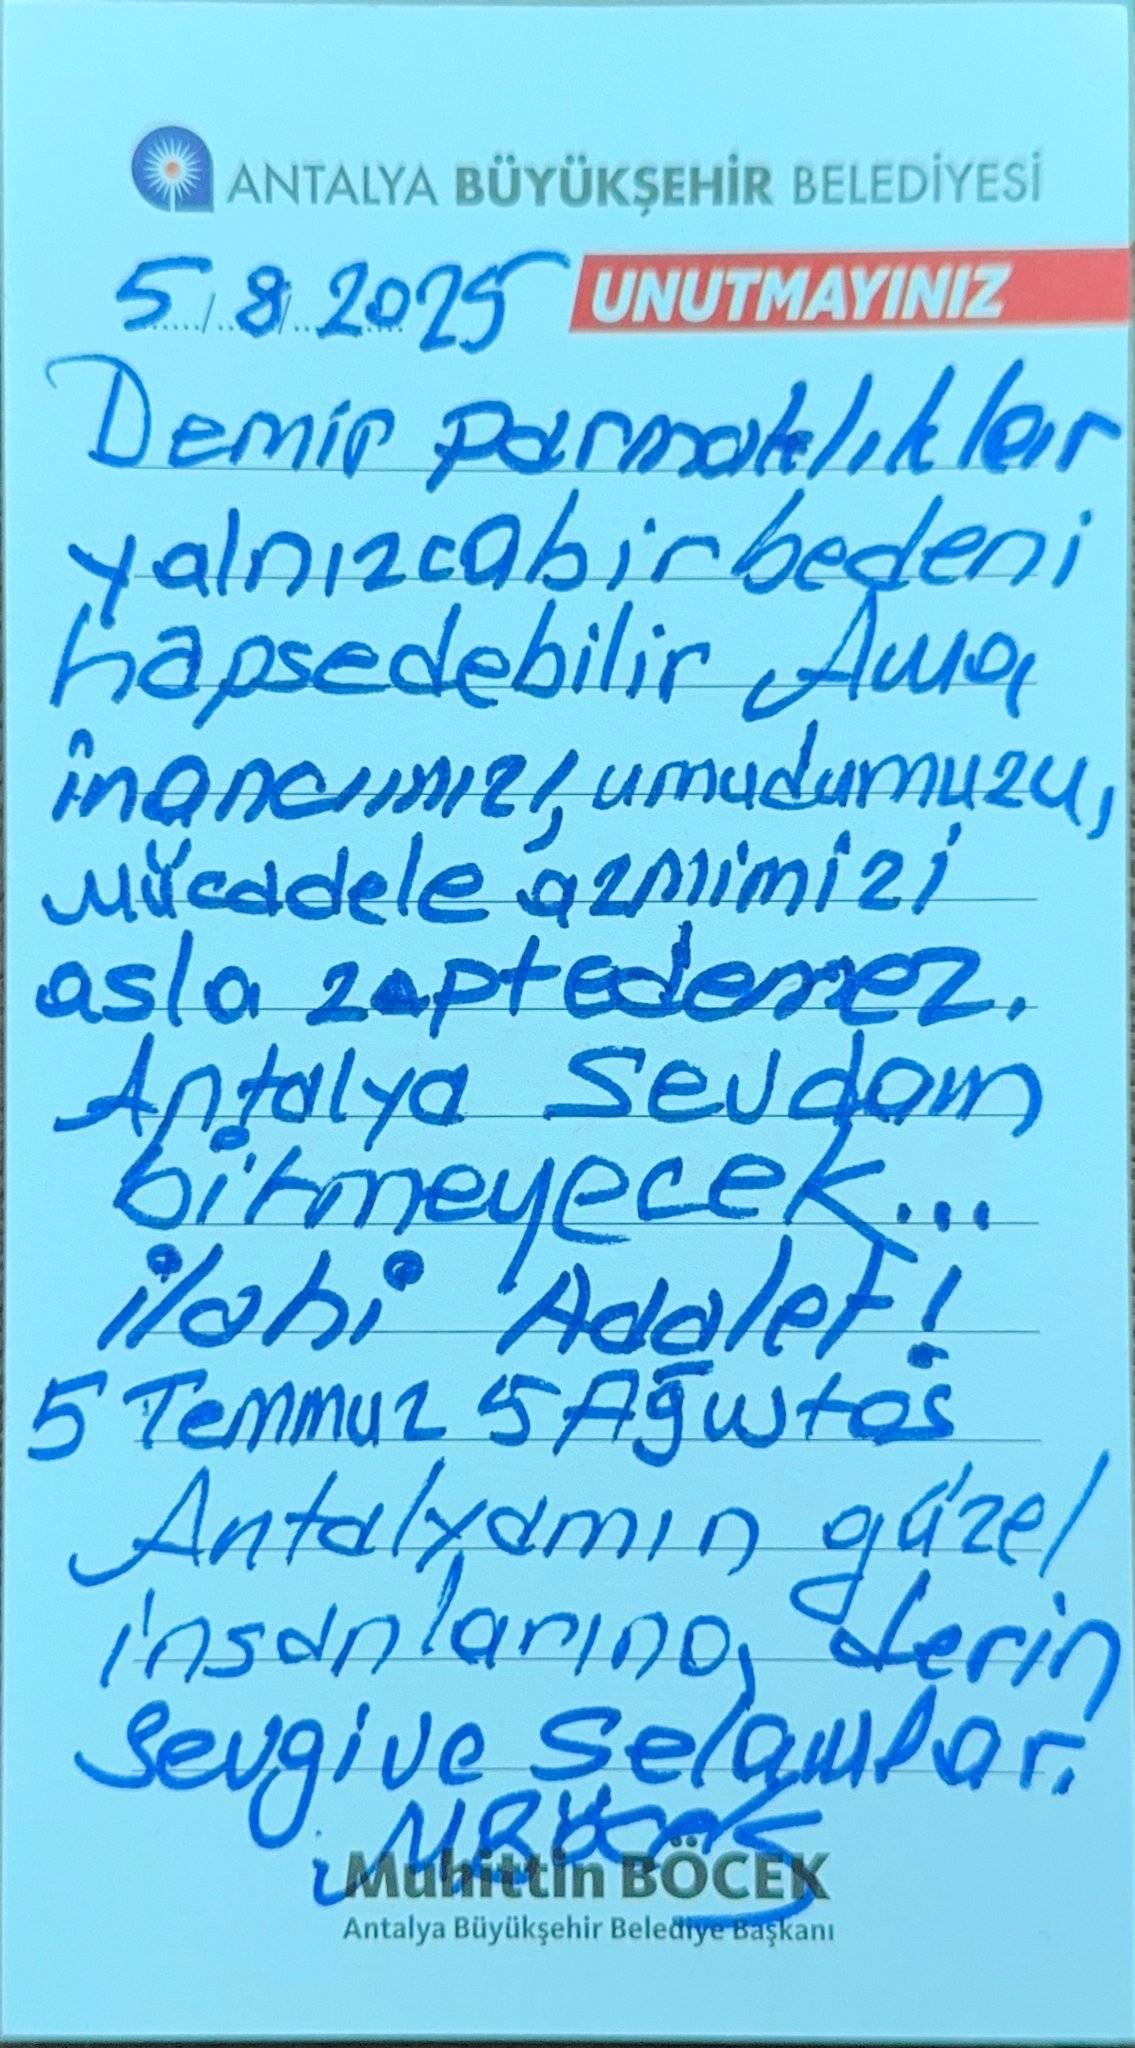 ANTALYA BÜYÜKŞEHİR BELEDİYESİ
5/8/2025 UNUTMAYINIZ
Demir parmaklıklar
yalnızca bir bedeni
hapsedebilir Ama
inancımızı, umudumuzu,
mücadele azmimizi
asla zaptedemez.
Antalya Sevdam
bitmeyecek...
ilahi Adalet!
5 Temmuz 5 Ağustos
Antalyamın güzel
insanlarına, derin
Sevgi ve Selamlar.
M Böcek
Muhittin BÖCEK
Antalya Büyükşehir Belediye Başkanı